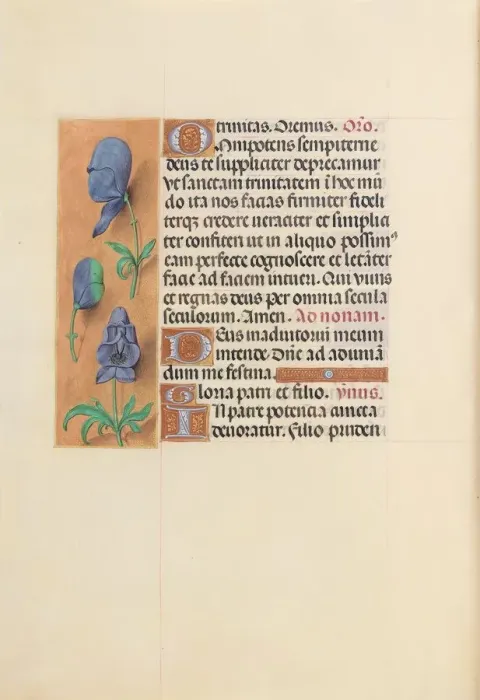 trinitas. Oremus. Oro.
Omnipotens sempiterne
deus te suppliciter deprecamur
vt sanctam trinitatem ī hoc mū
do ita nos facias firmiter fideli
terqꝫ credere ueraciter et simplici
ter confiteri ut in aliquo possimꝰ
eam perfecte cognoscere et letāter
facie ad faciem intueri. Qui viuis
et regnas deus per omnia secula
seculorum. Amen. Ad nonam.
Deus in adiutorium meum
intende. Dn̄e ad adiuuā
dum me festina.
Gloria patri et filio. ymus.
In patre potencia cuncta
deuoratur. Filio pruden